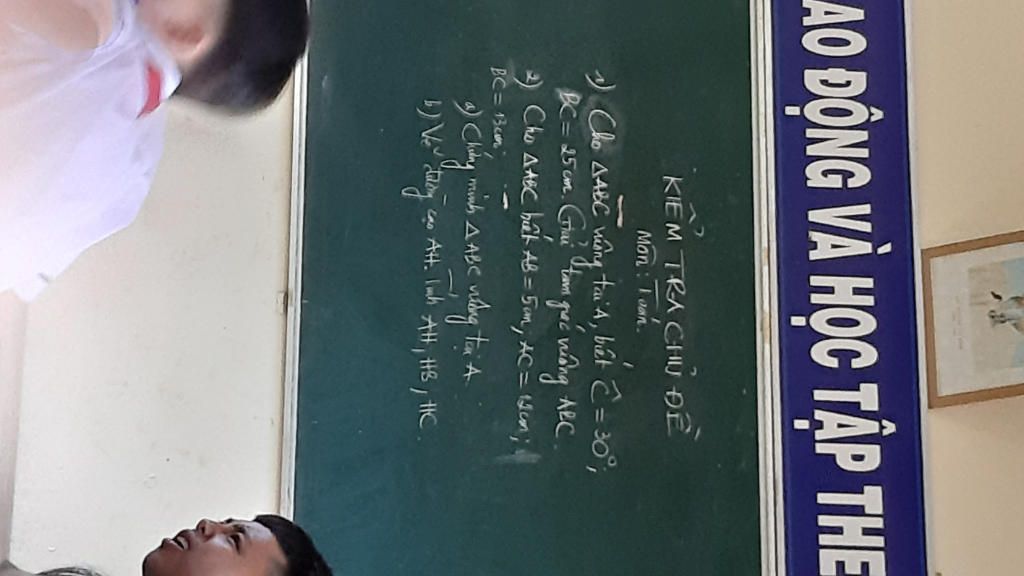 AO ĐỘNG VÀ HỌC TẬP THE
KIỂM TRA CHỦ ĐỀ
Môn: Toán
1) Cho △ABC vuông tại A, biết Ĉ = 30°,
BC = 25cm. Giải tam giác vuông ABC.
2) Cho △ABC biết AB = 5cm, AC = 12cm;
BC = 13cm.
a) Chứng minh △ABC vuông tại A
b) Vẽ đường cao AH. Tính AH, HB, HC.